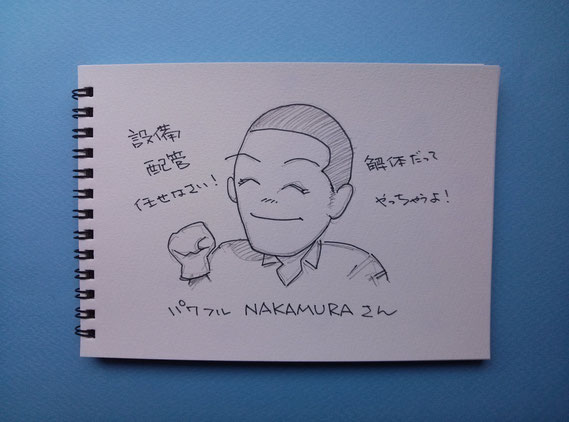 設備
配管
任せなさい！
解体だって
やっちゃうよ！
パワフル NAKAMURA さん